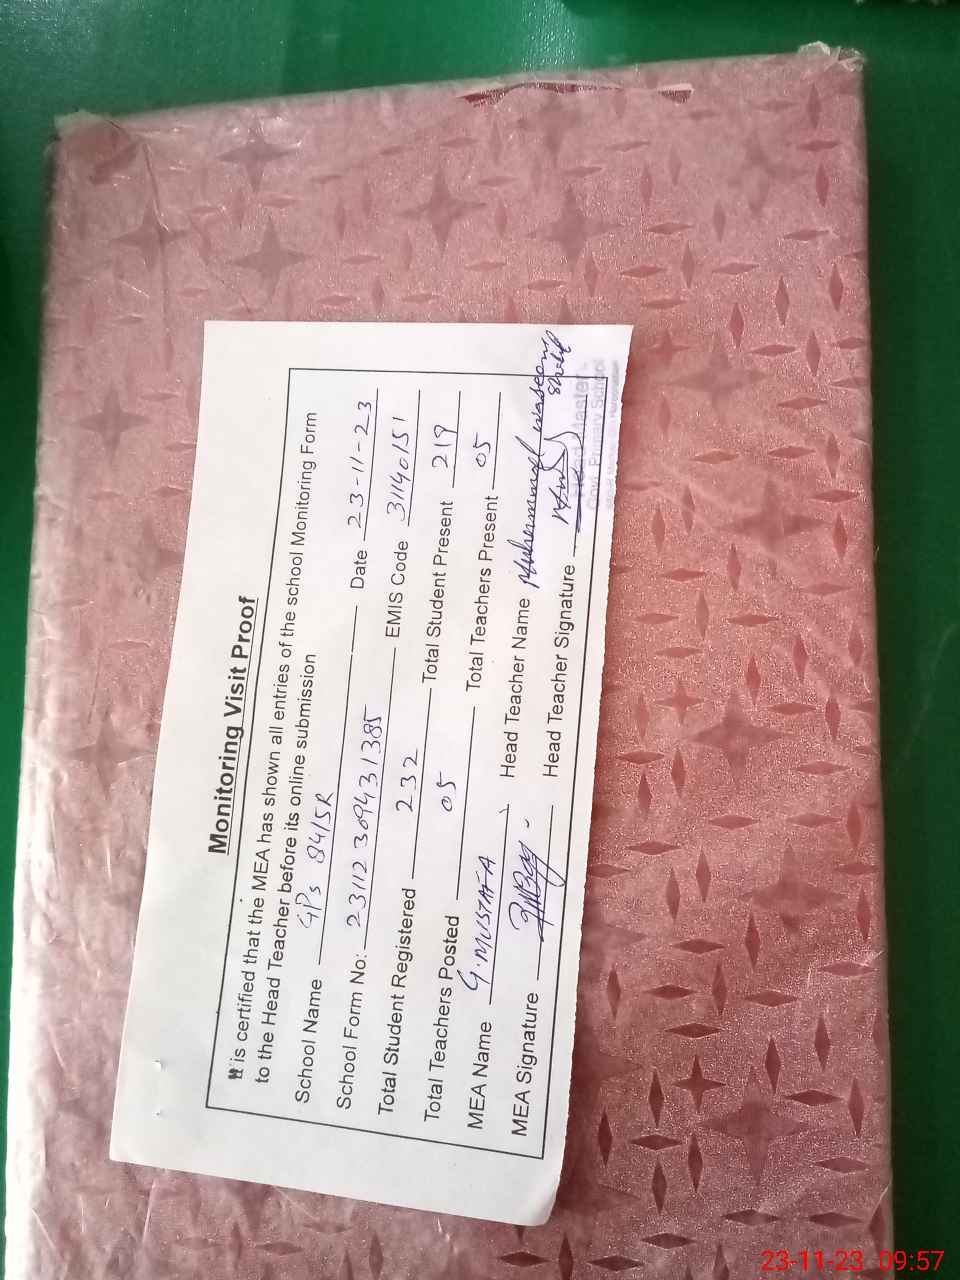 Monitoring Visit Proof
It is certified that the MEA has shown all entries of the school Monitoring Form
to the Head Teacher before its online submission
School Name GPs 84/5R Date 23-11-23
School Form No: 23112309431385 EMIS Code 31140151
Total Student Registered 232 Total Student Present 219
Total Teachers Posted 05 Total Teachers Present 05
MEA Name G.MUSTAFA Head Teacher Name Muhammad waseem
MEA Signature Head Teacher Signature
Master
Govt. Primary School
23-11-23 09:57